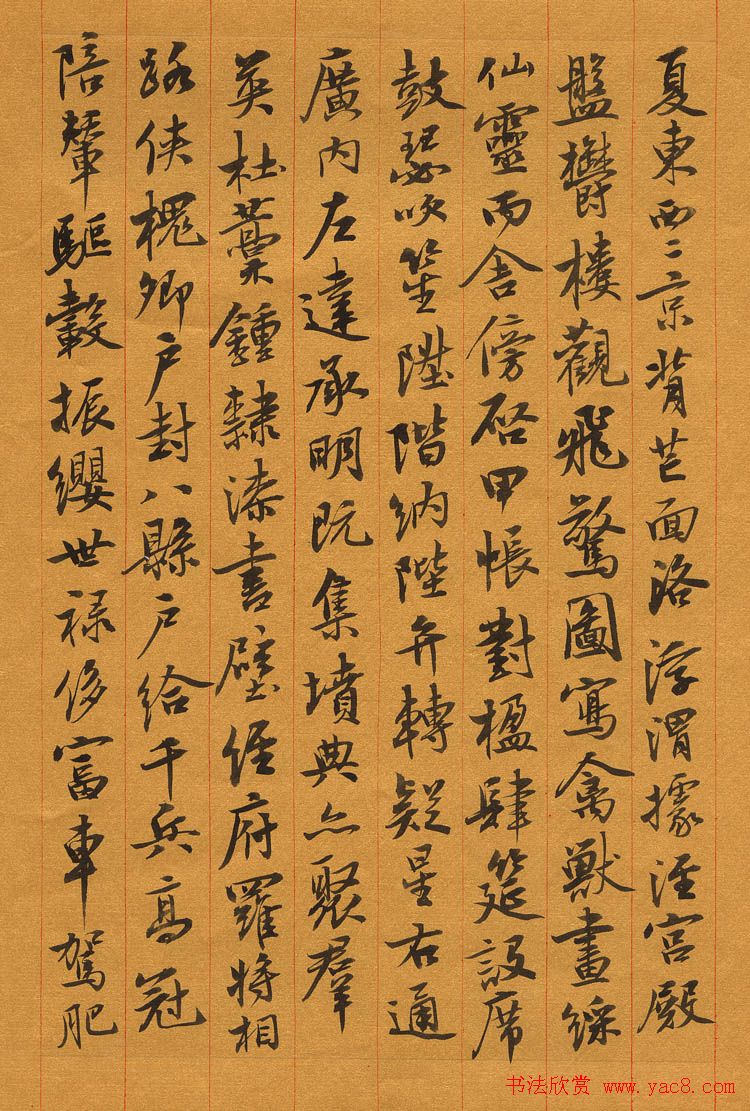 夏東西二京背芒面洛浮渭據涇宮殿
盤鬱樓觀飛驚圖寫禽獸畫綵
仙靈丙舍傍啓甲帳對楹肆筵設席
鼓瑟吹笙陞階納陛弁轉疑星右通
廣内左達承明既集墳典亦聚群
英杜藁鍾隸漆書壁經府羅將相
路俠槐卿戶封八縣戶給千兵高冠
陪輦驅轂振纓世祿侈富車駕肥
书法欣赏 www.yac8.com